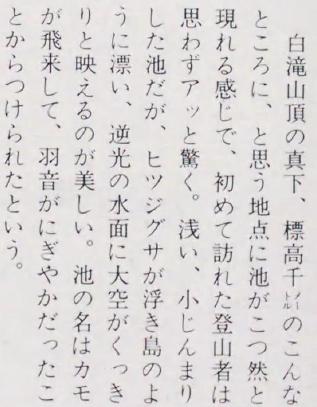 白滝山頂の真下、標高千㍍のこんな
ところに、と思う地点に池がこつ然と
現れる感じで、初めて訪れた登山者は
思わずアッと驚く。浅い、小じんまり
した池だが、ヒツジグサが浮き島のよ
うに漂い、逆光の水面に大空がくっき
りと映えるのが美しい。池の名はカモ
が飛来して、羽音がにぎやかだったこ
とからつけられたという。